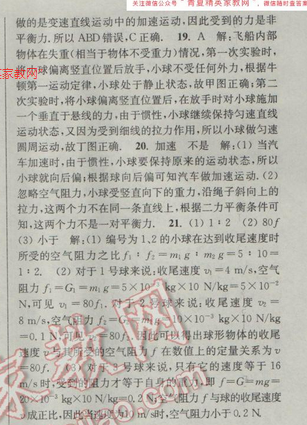 关注微信公众号"青夏精英家教网"
做的是变速直线运动中的加速运动,因此受到的力是非
平衡力.所以 ABD 错误,C正确. 19. A 解:飞船内部
物体在失重(相当于物体不受重力)情况,第一次实验时,
将小球偏离竖直位置后放手,小球不受任何外力,根据牛
顿第一运动定律,小球处于静止状态,故甲图正确;第二
次实验时,将小球偏离竖直位置后,在放手时对小球施加
一个垂直于悬线的力,由于惯性,小球继续保持匀速直线
运动状态,又因为受到细线的拉力作用,所以小球做匀速
圆周运动,故丁图正确. 20. 加速 不是 解:(1)当汽
车加速时,由于惯性,小球要保持原来的运动状态,所以
小球就向后偏;根据球向后偏可知汽车做加速运动.(2)
忽略空气阻力,小球受竖直向下的重力,沿绳子斜向上的
拉力,这两个力不在同一条直线上,根据二力平衡条件可
知,这两个力不是一对平衡力. 21. (1)1∶2 (2)80f
(3)小于 解:(1)编号为1,2的小球在达到收尾速度时
所受的空气阻力之比 f₁∶f₂=m₁g∶m₂g=5∶10=
1∶2. (2)对于1号球来说;收尾速度 v₁=4 m/s,空气
阻力 f=G₁=m₁g=5×10⁻³kg×10 N/kg=5×10⁻²
N,可见 v₁=80f₁.对于2号球来说;收尾速度 v₂=
8 m/s,空气阻力
=0.1 N,可见
因此可以得出球形物体的收尾
速度
所受的空气阻力 f 在数值上的定量关系为 v
=80f.
号球来说,只有它的速度等于16
m/s时,受到的阻力才等于自身的重力,即 f=G=mg=
20×10⁻³ kg×10 N/kg=0.2 N,
阻力 f 与球的收尾速度
成正比,因此
m/s时,空气阻力小于0.2 N.
家教网